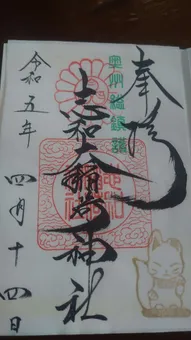 奉拝
奥州総鎮護
志和稲荷神社
令和五年
四月十四日